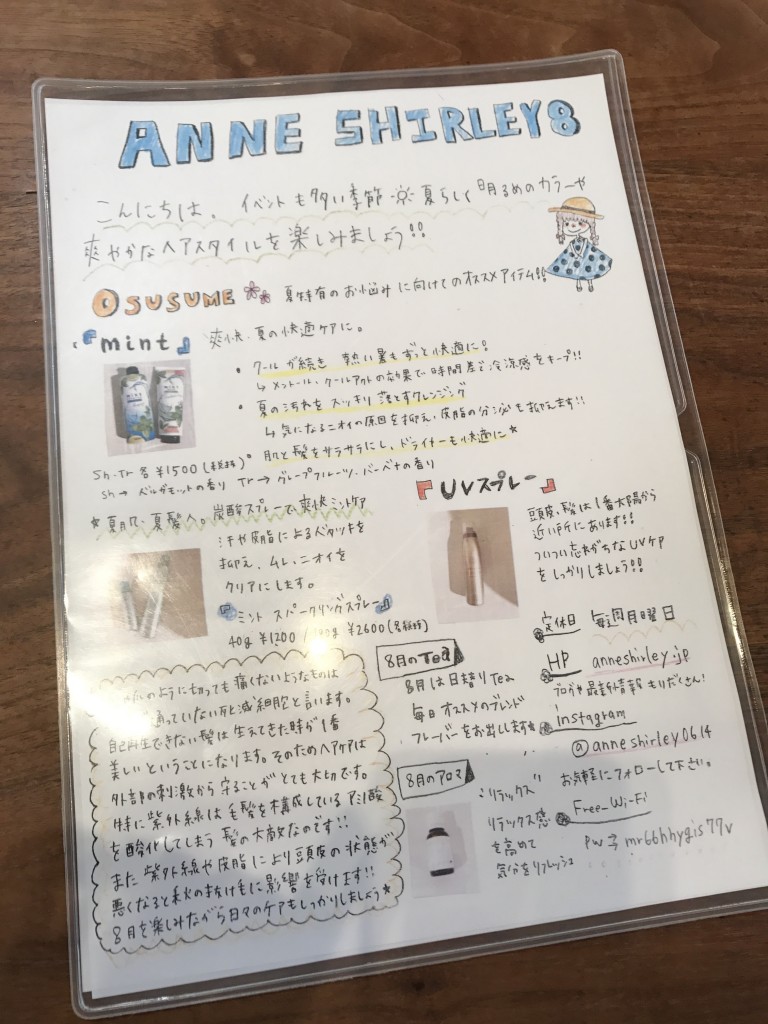 ANNE SHIRLEY8
こんにちは。イベントも多い季節 夏らしく明るめのカラーや
爽やかなヘアスタイルを楽しみましょう!!
OSUSUME 夏特有のお悩みに向けてのオススメアイテム!!
『mint』 爽快・夏の快適ケアに。
・クールが続き 熱い夏もずっと快適に!
↳メントール、クールアウトの効果で時間差で冷涼感をキープ!!
・夏の汚れをスッキリ落とすクレンジング
↳気になるニオイの原因を抑え、皮脂の分泌も抑えます!!
肌と髪をサラサラにし、ドライヤーも快適に★
Sh・Tr 各¥1500(税抜)
Sh→ベルガモットの香り Tr→グレープフルーツ、バーベナの香り
★夏肌・夏髪へ。炭酸スプレーで爽快ミントケア
汗や皮脂によるベタツキを
抑え、ムレ、ニオイを
クリアにします。
『ミント スパークリングスプレー』
40g ¥1200 / ¥2600(各税抜)
『UVスプレー』
頭皮、髪は1番太陽から
近い所にあります!!
ついつい忘れがちなUVケア
をしっかりしましょう!!
のように切っても痛くないようなものは
通っていない死滅細胞と言います。
自己再生できない髪は生えてきた時が1番
美しいということになります。そのためヘアケアは
外部の刺激から守ることがとても大切です。
特に紫外線は毛髪を構成しているアミノ酸
を酸化してしまう髪の大敵なのです!!
また紫外線や皮脂により頭皮の状態が
悪くなると秋の抜け毛に影響を受けます!!
8月を楽しみながら日々のケアもしっかりしましょう★
8月のTea
8月は日替りTea
毎日オススメのブレンド
フレーバーをお出しします
8月のアロマ
"リラックス"
リラックス感
を高めて
気分をリフレッシュ
定休日 毎週月曜日
HP anneshirley.jp
ブログや最新情報もりだくさん!
instagram
@anneshirley0614
お気軽にフォローして下さい。
Free-Wi-Fi
PW⇒mr66hhygis77v